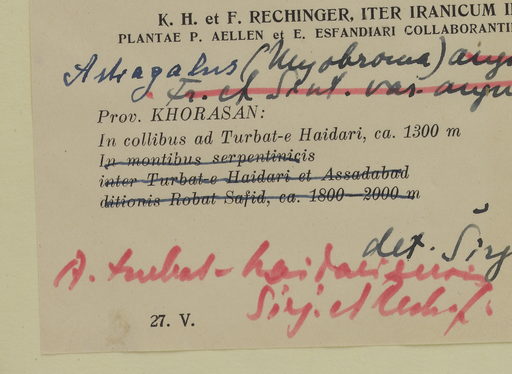 K. H. et F. RECHINGER, ITER IRANICUM I
PLANTAE P. AELLEN et E. ESFANDIARI COLLABORANTI
Astragalus (Myobroma)
Fisch var.
Prov. KHORASAN:
In collibus ad Turbat-e Haidari, ca. 1300 m
In montibus serpentinicis
inter Turbat-e Haidari et Assadabad
ditionis Robat Safid, ca. 1800—2000 m
det. Širj
A. turbat-haidariensis
Sirj. et Rech. f.
27. V.